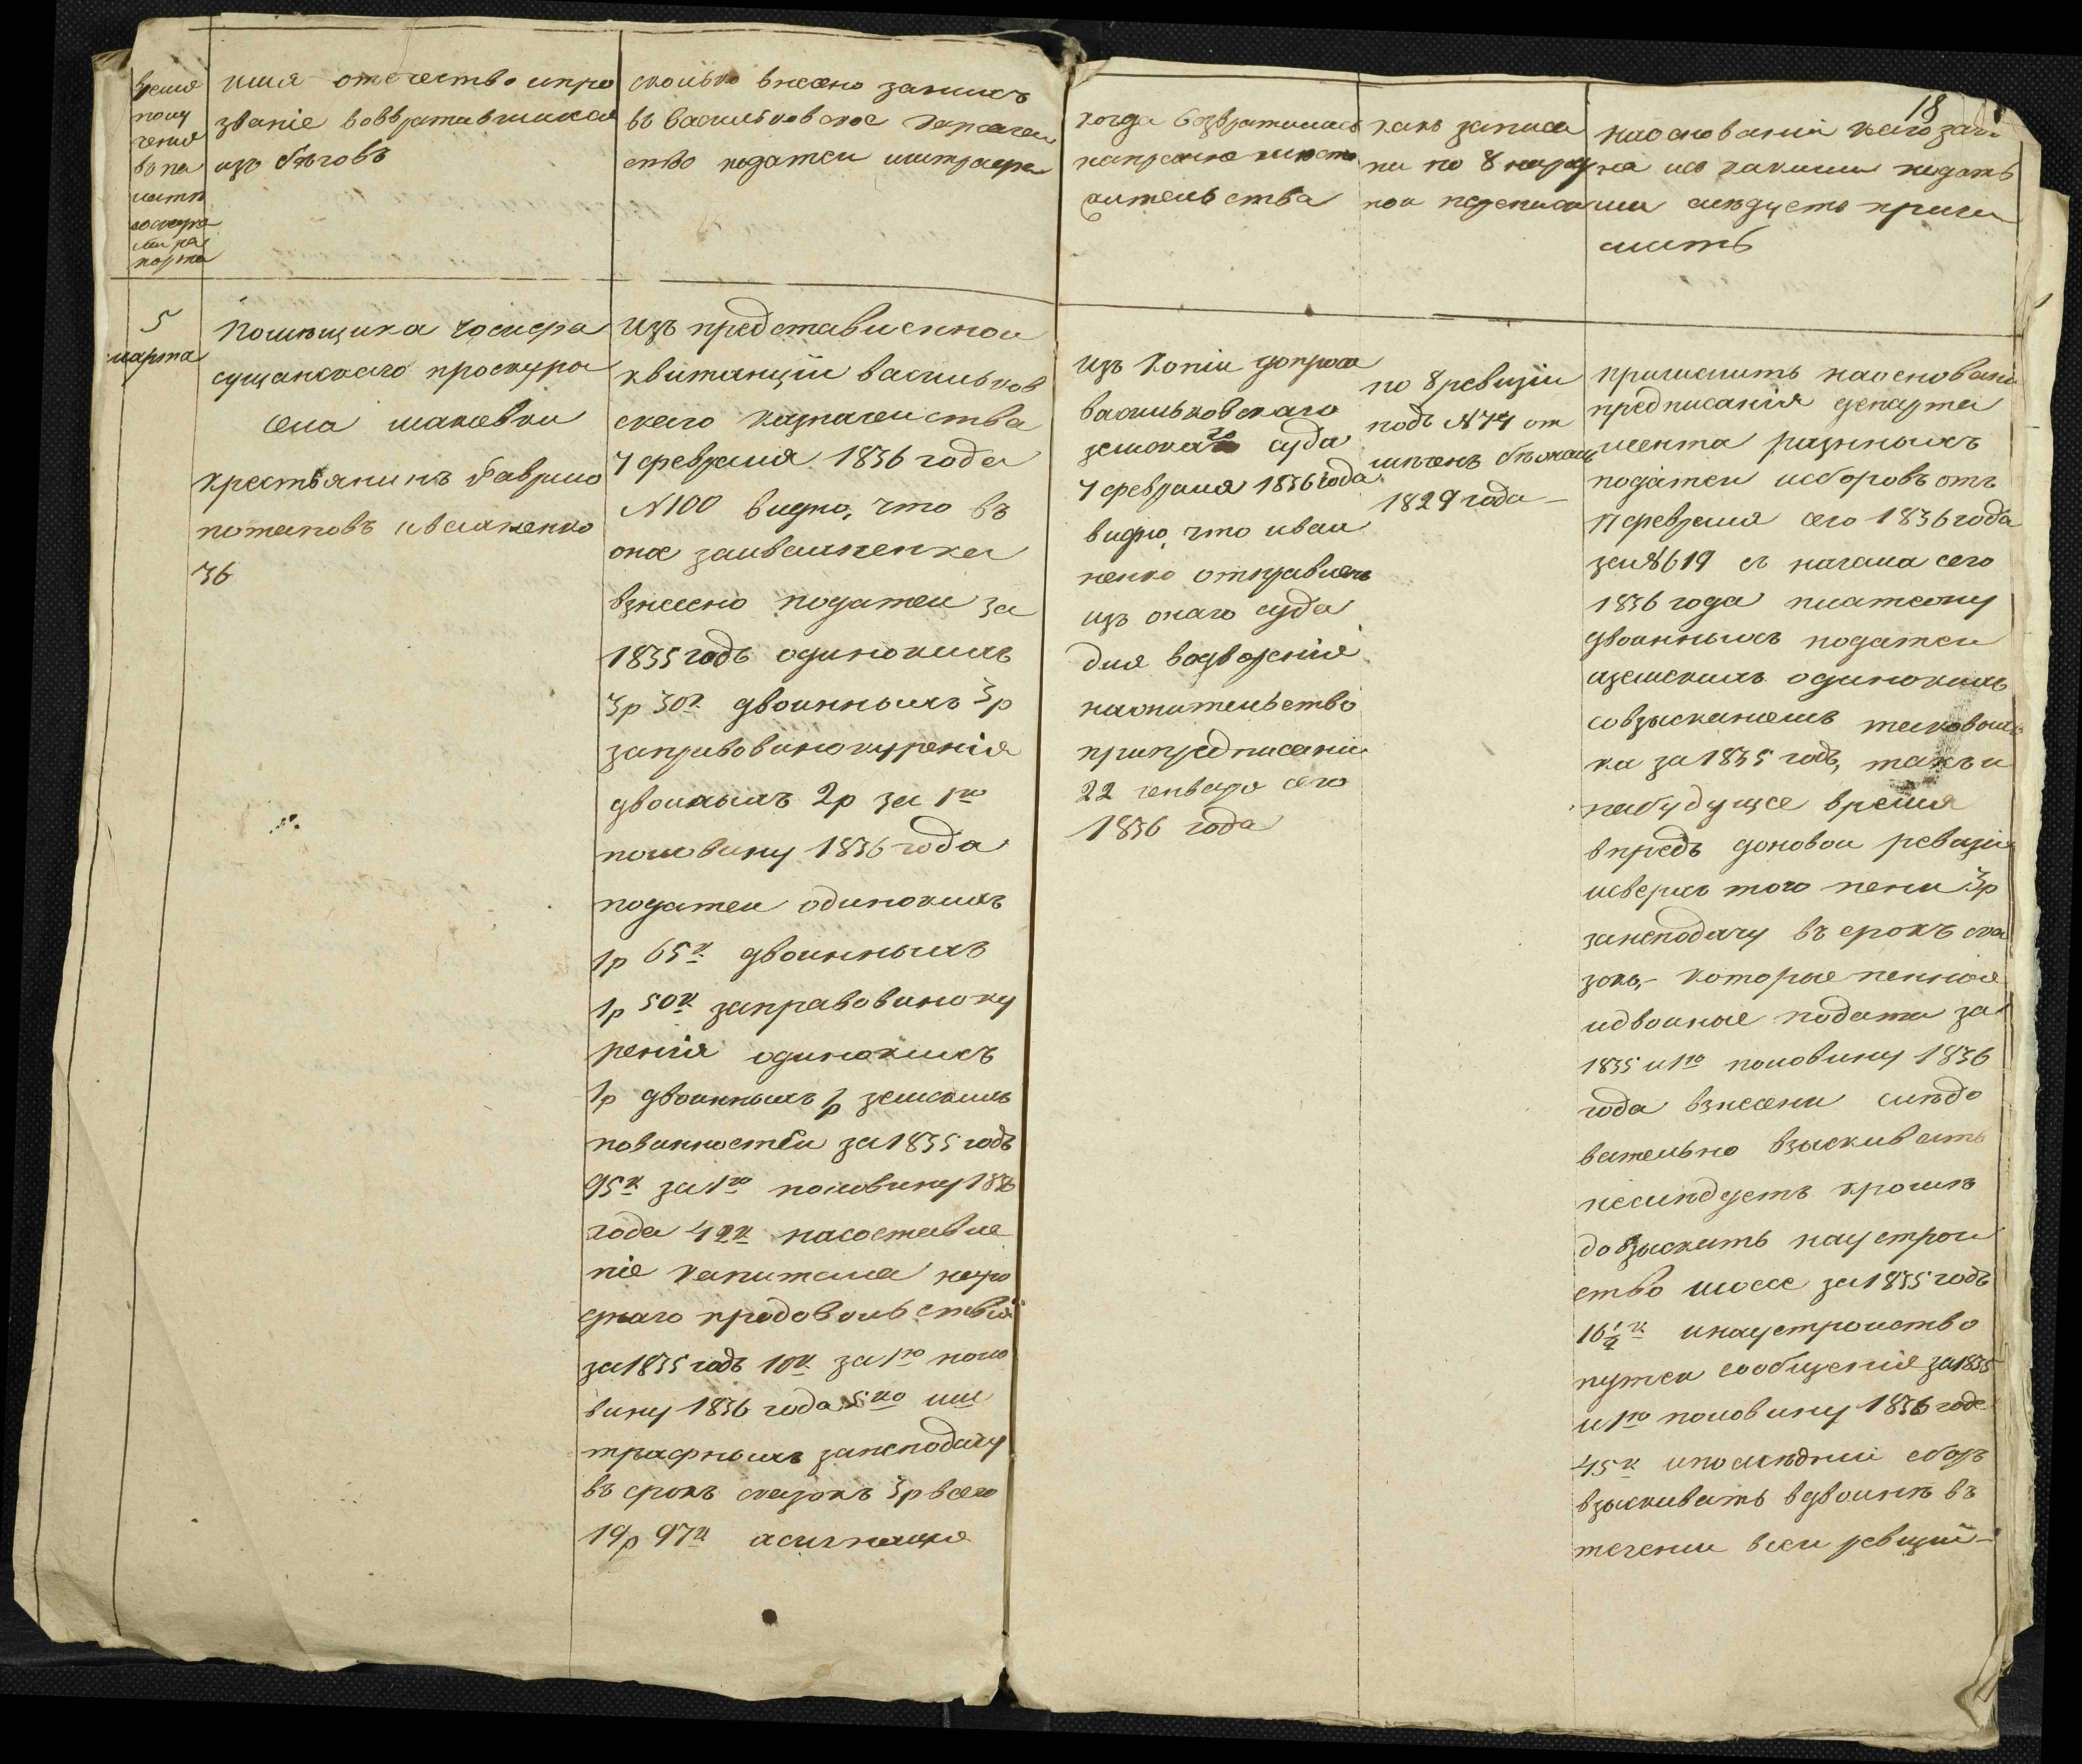 18
время
полу
ченія
въ па
латѣ
рапорта
имя отечество и про
званіе возвратившихся
изъ бѣговъ
сколько внесено за нихъ
въ Васильковское Казначей
ство податей и штрафа
когда возвратились
на прежнее место
жительства
какъ записа
ны по 8 народ
ной переписи
на основаніи чего зач
на ихъ какими податѣ
ми слѣдуетъ причи
слить
5
марта
Помѣщика
сущанскаго проскура
села маковки
крестьянинъ Гаврило
потаповъ иваненко
36
Изъ представленной
квитанціи васильков
скаго казначейства
7 февраля 1836 года
N 100 видно, что въ
оное за иваненка
взнесено податей за
1835 годъ одинокихъ
3р 30к двойныхъ 3р
за право винокуренія
двойныхъ 2р за 1ю
половину 1836 года
податей одинокихъ
1р 65к двойныхъ
1р 50к за право виноку
ренія одинокихъ
1р двойныхъ 1р земскихъ
повинностей за 1835 годъ
95к за 1ю половину 1836
года 42к на составле
ніе капитала наро
днаго продовольствія
за 1835 годъ 10к за 1ю поло
вину 1836 года 5ко и ш
трафныхъ за неподачу
въ срокъ сказокъ 3р всего
19р 97к асигнаця
Изъ копіи допроса
васильковскаго
земскаго суда
7 февраля 1836 года
видно, что иван
ненко отправленъ
изъ онаго суда
для водворенія
на жительство
при предписаніи
22 генваря сего
1836 года
по 8 ревизіи
подъ N 74 от
мѣченъ бѣжавъ
1829 года
причислить на основаніи
предписанія департа
мента разныхъ
податей и сборовъ отъ
17 февраля сего 1836 года
за N 8619 съ начала сего
1836 года платежу
двойныхъ податей
и земскихъ одинокихъ
со взысканіемъ таковыхъ
ка за 1835 годъ, такъ и
на будущее время
впредь до новой ревизіи
и сверхъ того пени 3р
за неподачу въ срокъ ска
зокъ, которые пенные
и двойные подати за
1835 и 1ю половину 1836
года взнесены слѣдо
вательно взыскивать
неслѣдуетъ кромѣ
довзыскать на устрой
ство шоссе за 1835 годъ
16½к и на устройство
путей сообщенія за 1835
и 1ю половину 1836 года
45к и последній сборъ
взыскивать вдвойнѣ въ
теченіи всей ревизіи